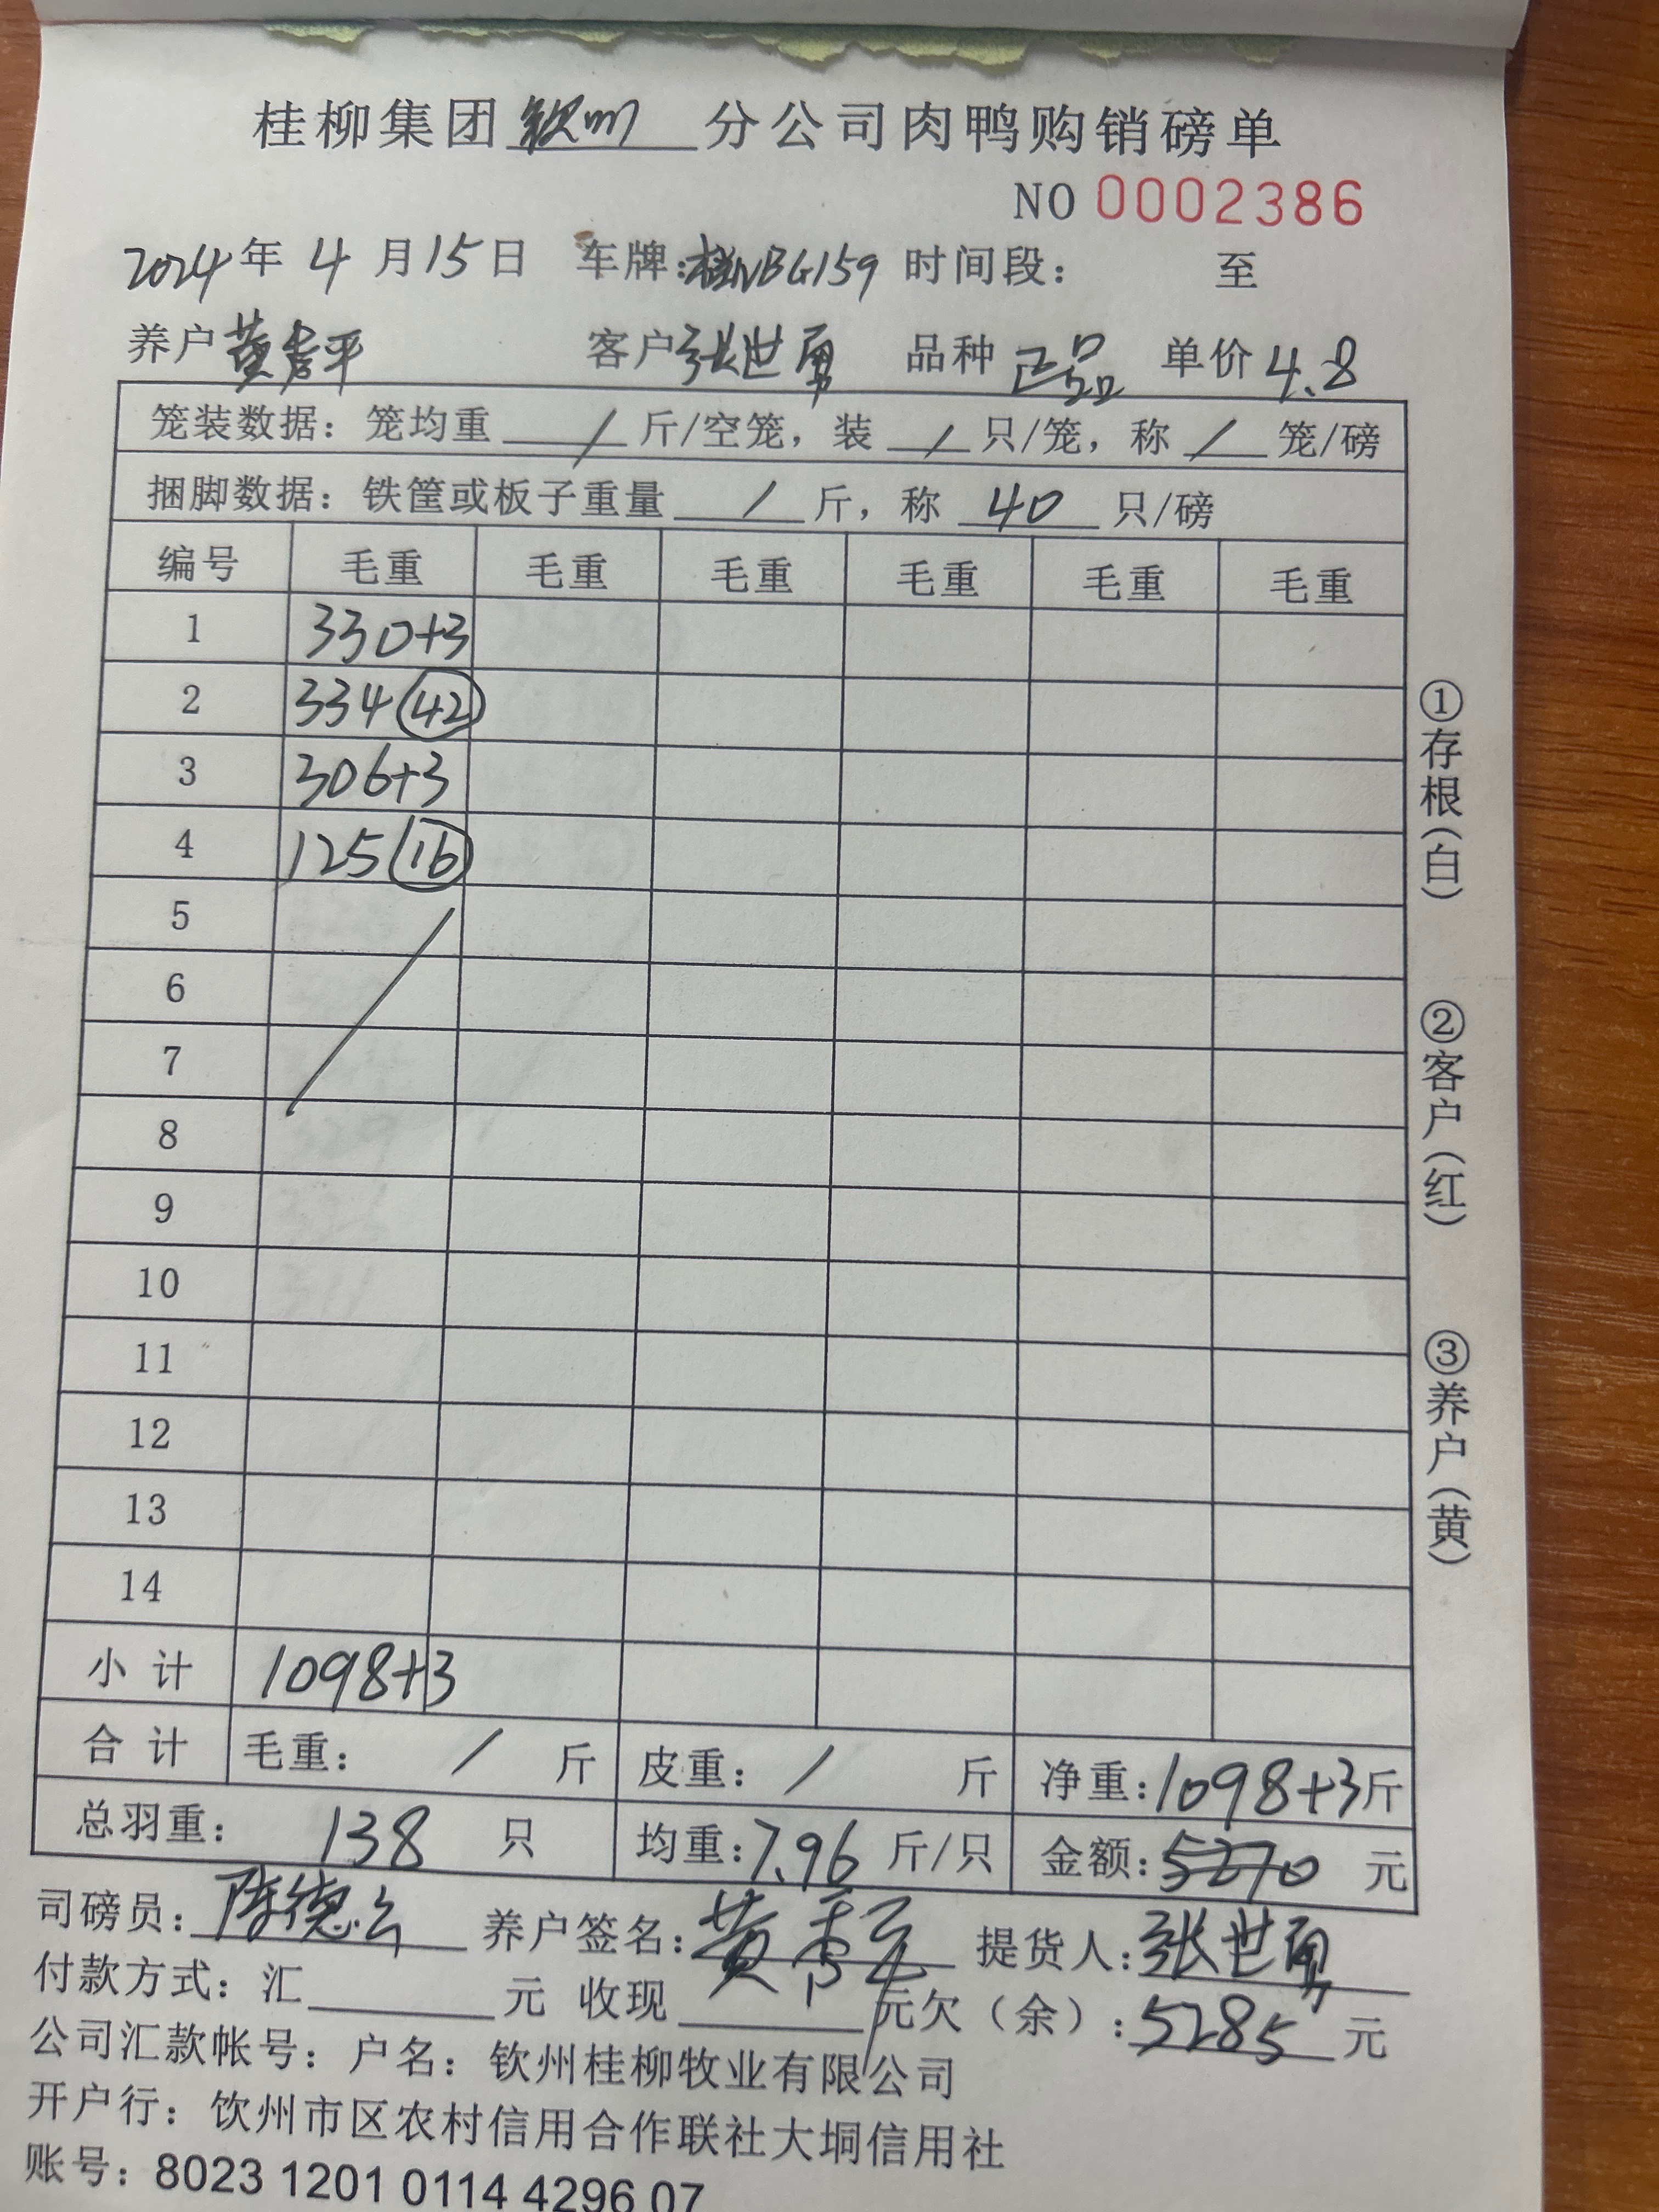 桂柳集团钦州分公司肉鸭购销磅单
NO 0002386
2024年 4月15日 车牌:桂NBG159 时间段: 至
养户 黄 平 客户 张世勇 品种 正品 单价 4.8
笼装数据: 笼均重 / 斤/空笼, 装 / 只/笼, 称 / 笼/磅
捆脚数据: 铁筐或板子重量 / 斤, 称 40 只/磅
编号 毛重 毛重 毛重 毛重 毛重 毛重
1 330+3
2 334 (42)
3 306+3
4 125 (16)
5
6
7
8
9
10
11
12
13
14
小计 1098+3
合计 毛重: / 斤 皮重: / 斤 净重: 1098+3斤
总羽重: 138 只 均重: 7.96 斤/只 金额: 5270 元
司磅员: 陈德 养户签名: 黄 提货人: 张世勇
付款方式: 汇 元 收现 元欠(余): 5285 元
公司汇款帐号: 户名: 钦州桂柳牧业有限公司
开户行: 饮州市区农村信用合作联社大垌信用社
账号: 8023 1201 0114 4296 07
①存根(白)
②客户(红)
③养户(黄)